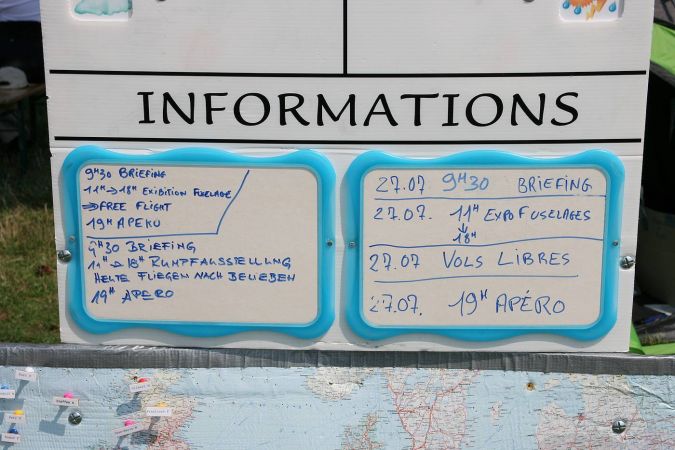 INFORMATIONS
9H30 BRIEFING
11H → 18H EXIBITION FUSELAGE
⇒ FREE FLIGHT
19H APERO
9H30 BRIEFING
11H → 18H RUMPFAUSSTELLUNG
HEUTE FLIEGEN NACH BELIEBEN
19H APERO
27.07 9H30 BRIEFING
27.07. 11H EXPO FUSELAGES
↓
18H
27.07 VOLS LIBRES
27.07. 19H APÉRO